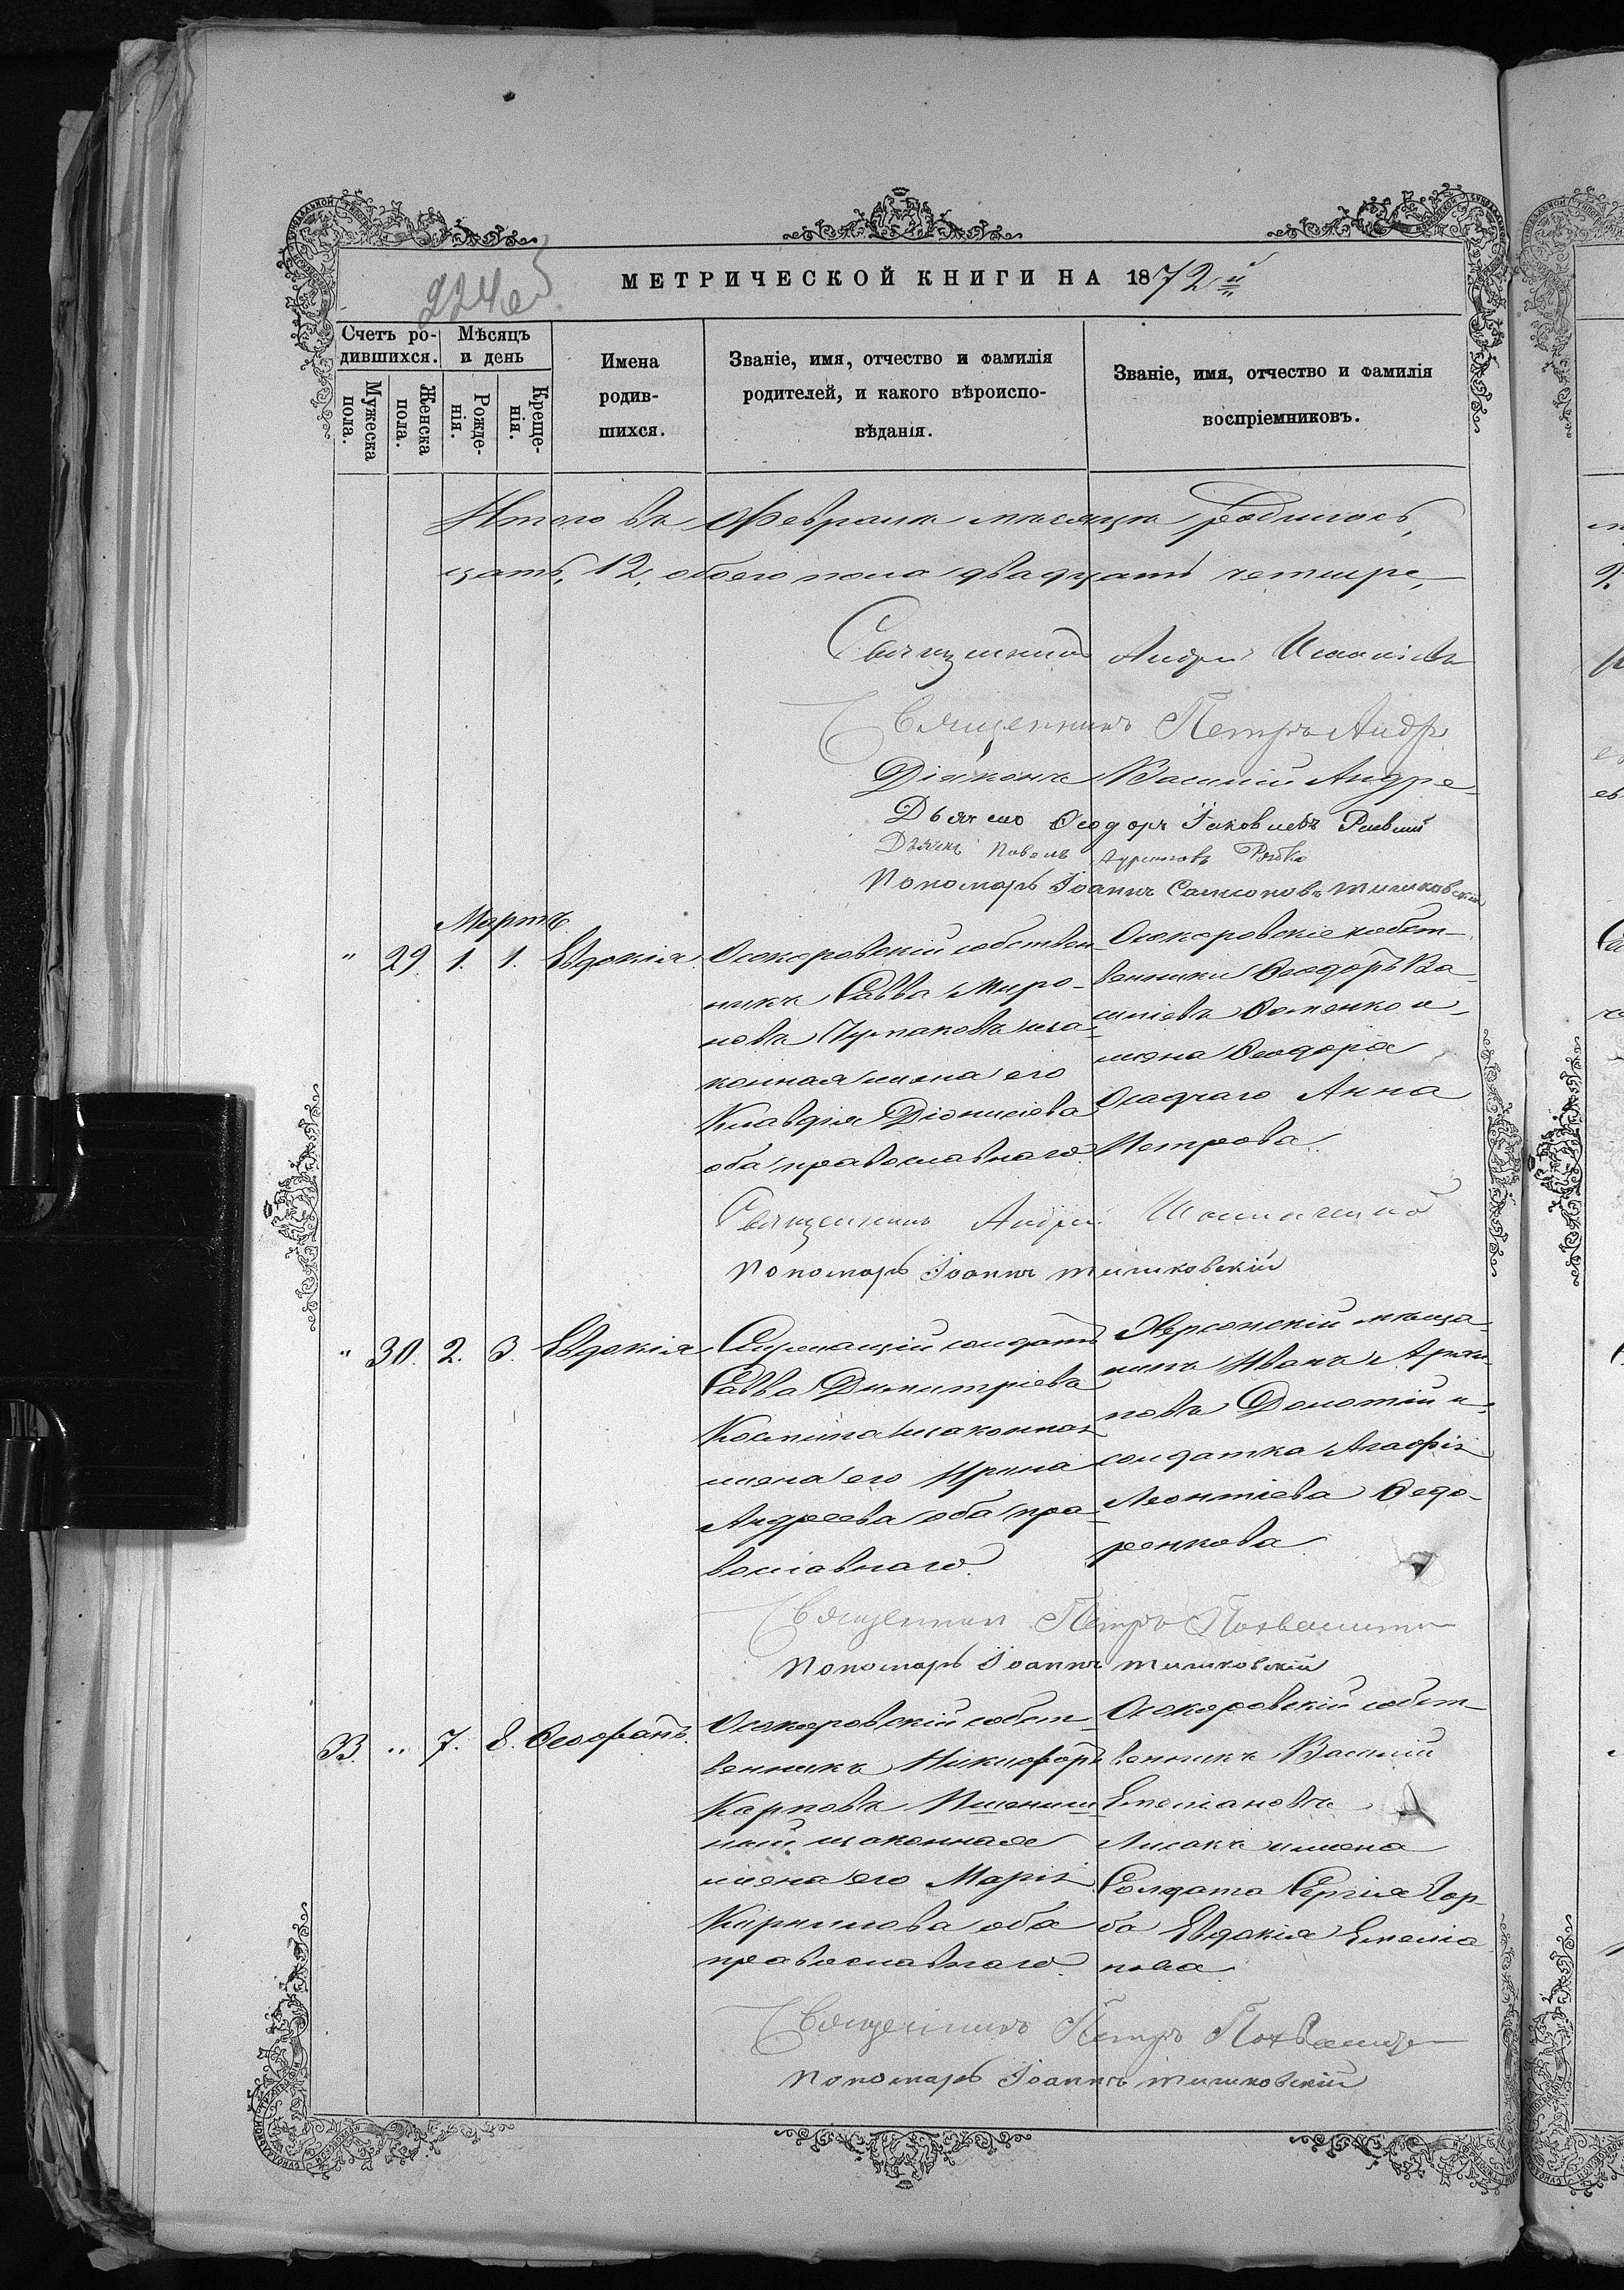 МЕТРИЧЕСКОЙ КНИГИ НА 1872й
224об
Счетъ ро-
дившихся.
Мужеска
пола.
Женска
пола.
Мѣсяцъ
и день
Рожде-
нія.
Креще-
нія.
Имена
родив-
шихся.
Званіе, имя, отчество и фамилія
родителей, и какого вѣроиспо-
вѣданія.
Званіе, имя, отчество и фамилія
воспріемниковъ.
Итого въ Февралѣ мѣсяцѣ родилось,
цать, 12, обоего пола двадцать четыре,
Священникъ Андрей
Священникъ Петръ Андр
Діаконъ Василій Андре-
Дьячекъ Ѳеодоръ Іаковлевъ
Дьячекъ Павелъ
Пономарь Іоаннъ Самсоновъ Тишковскій
Мартъ
" 29. 1. 1. Евдокія
Осокоровскій собствен-
никъ Савва Миро-
новъ Чупаковъ и за-
конная жена его
Клавдія Діонисіева
оба православнаго.
Осокоровскіе собст-
венники Ѳеодоръ Ва-
силіевъ Ѳоменко и
жена Ѳеодора
Осадчаго Анна
Петрова.
Священникъ Андрей
Пономарь Іоаннъ Тишковскій
" 30. 2. 3. Евдокія
Служащій солдатъ
Савва Димитріевъ
Костина и законная
жена его Ирина
Андреева оба пра-
вославнаго.
Херсонскій мѣща-
нинъ Иванъ Архи-
повъ Долотій и
солдатка Агафія
Леонтіева Ѳедо-
ренкова.
Священникъ Петръ
Пономарь Іоаннъ Тишковскій
33. " 7. 8. Ѳеофанъ.
Осокоровскій собст-
венникъ Никифоръ
Карповъ Пшенич-
ный и законная
жена его Марія
Кирилова оба
православнаго.
Осокоровскій собст-
венникъ Василій
Емеліановъ
Лисакъ и жена
Солдата Сергія Гор-
ба Евдокія Емелiа
нова.
Священникъ Петръ
Пономарь Іоаннъ Тишковскій